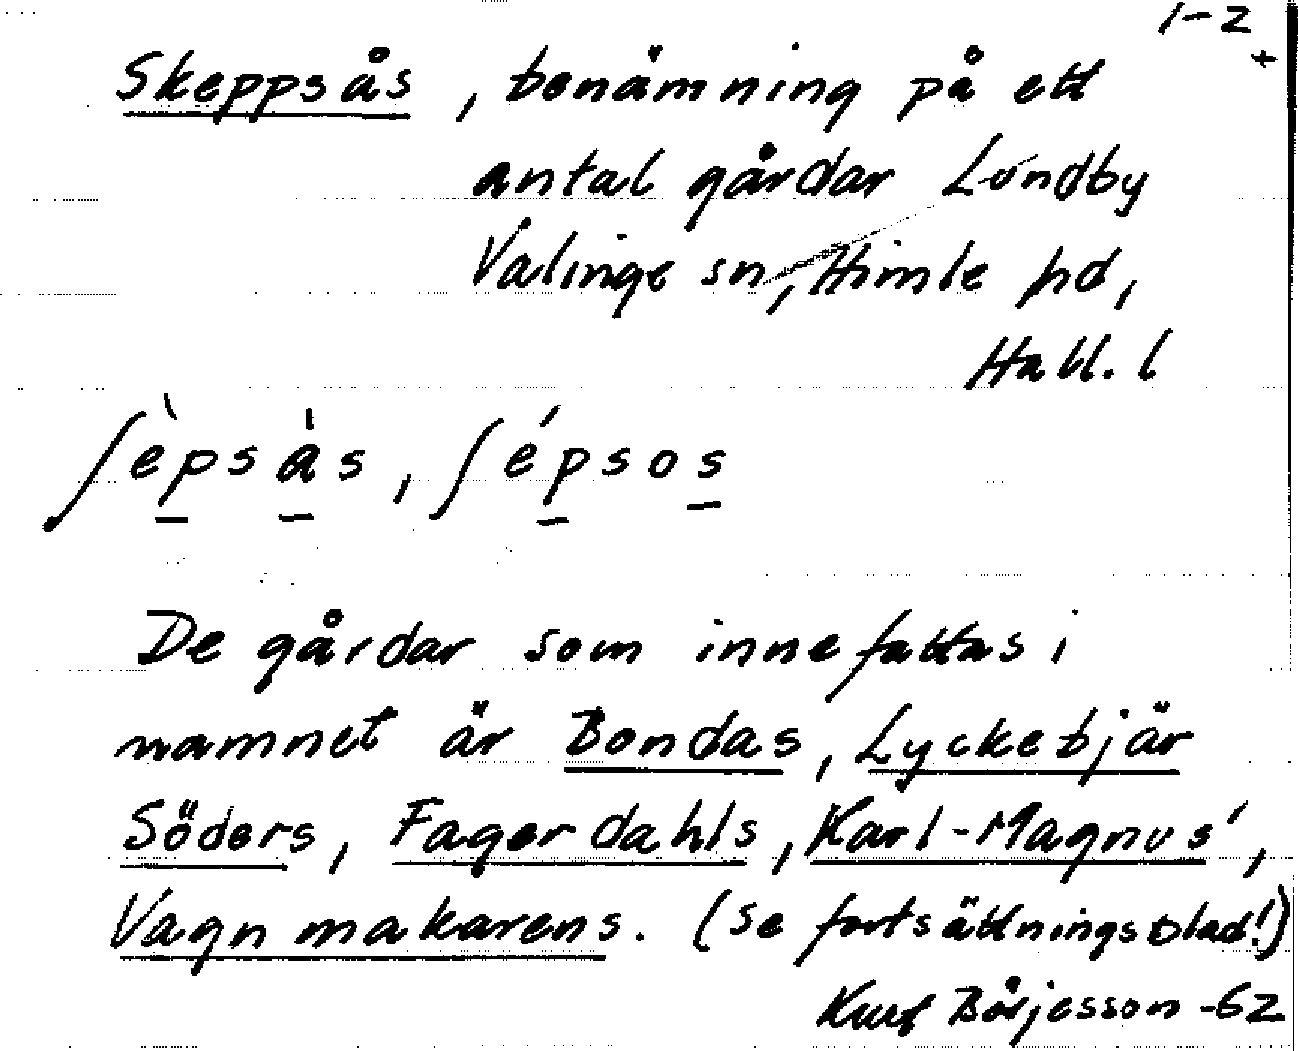 1-2
+
Skeppsås, benämning på ett
antal gårdar Lundby
Valinge sn, Himle hd,
Hall. l
ʃèpsås, ʃépsos
De gårdar som innefattas i
namnet är Bondas, Lyckebjär
Söders, Fagerdahls, Karl-Magnus',
Vagnmakarens. (se fortsättningsblad!)
Kurt Börjesson -62